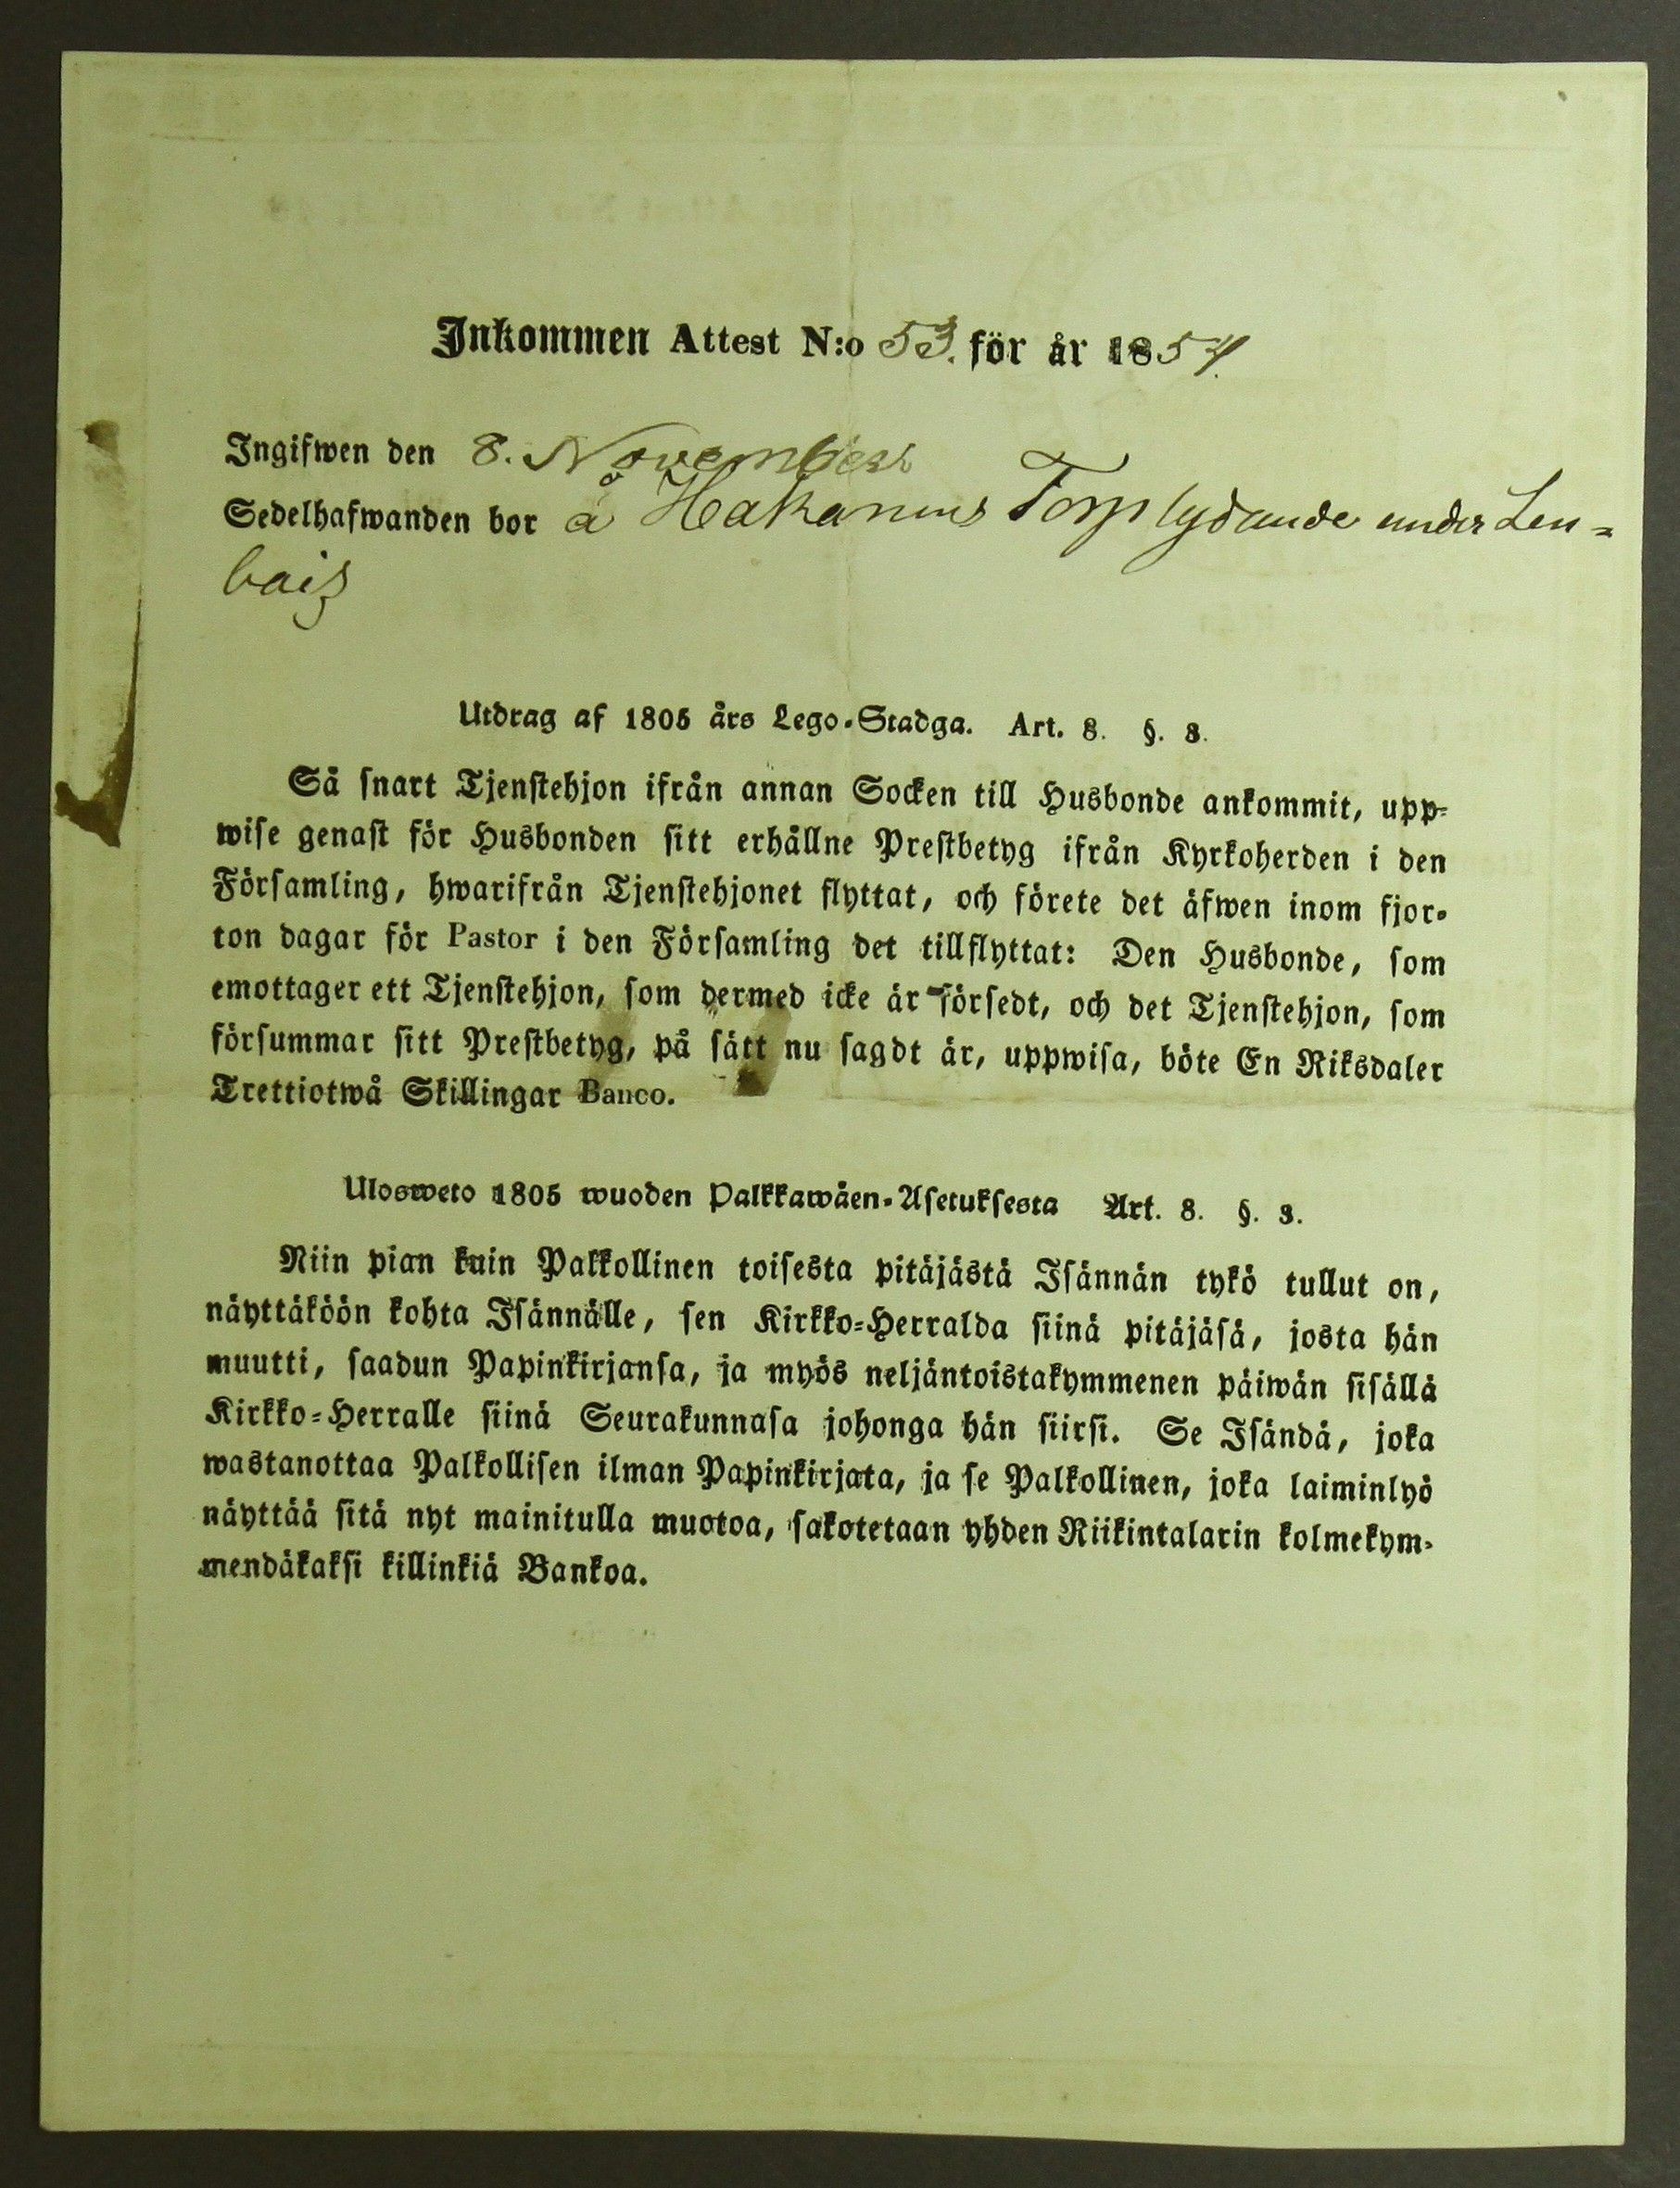 Inkommen Attest N:o 53. för år 1854.
Ingifwen den 8. November
Sedelhafwanden bor å Hakanins Torp lydande under Len=
bais
Utdrag af 1805 års Lego-Stadga. Art. 8. §. 3.
Så snart Tjenstehjon ifrån annan Socken till Husbonde ankommit, upp=
wise genast för Husbonden sitt erhållne Prestbetyg ifrån Kyrkoherden i den
Församling, hwarifrån Tjenstehjonet flyttat, och förete det äfwen inom fjor-
ton dagar för Pastor i den Församling det tillflyttat: Den Husbonde, som
emottager ett Tjenstehjon, som dermed icke är försedt, och det Tjenstehjon, som
försummar sitt Prestbetyg, på sätt nu sagdt är, uppwisa, böte En Riksdaler
Trettiotwå Skillingar Banco.
Ulosweto 1805 wuoden Palkkawäen-Asetuksesta Art. 8. §. 3.
Niin pian kuin Palkollinen toisesta pitäjästä Isännän tykö tullut on,
näyttäköön kohta Isännälle, sen Kirkko=Herralda siinä pitäjäsä, josta hän
muutti, saadun Papinkirjansa, ja myös neljäntoistakymmenen päiwän sisällä
Kirkko=Herralle siinä Seurakunnasa johonga hän siirsi. Se Isändä, joka
wastanottaa Palkollisen ilman Papinkirjata, ja se Palkollinen, joka laiminlyö
näyttää sitä nyt mainitulla muotoa, sakotetaan yhden Riikintalarin kolmekym-
mendäkaksi killinkiä Bankoa.